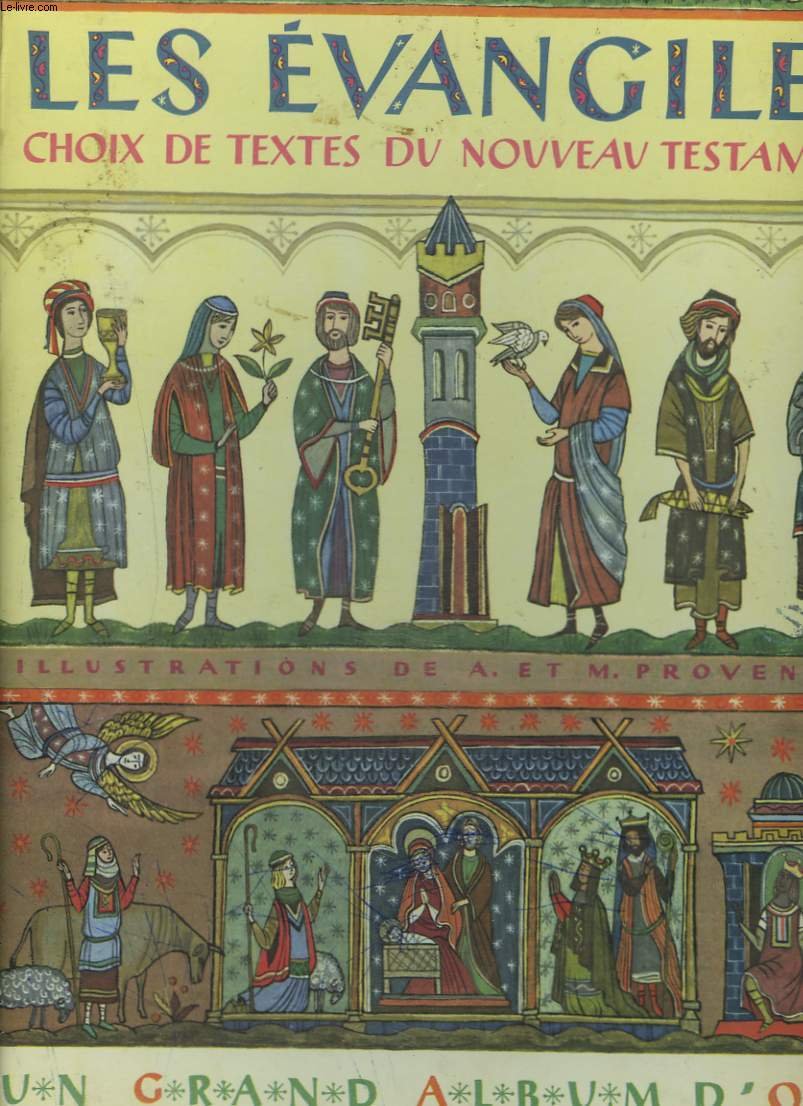 Le-livre.com
LES ÉVANGILE
CHOIX DE TEXTES DU NOUVEAU TESTAM
ILLUSTRATIONS DE A. ET M. PROVEN
U*N G*R*A*N*D A*L*B*U*M D'O